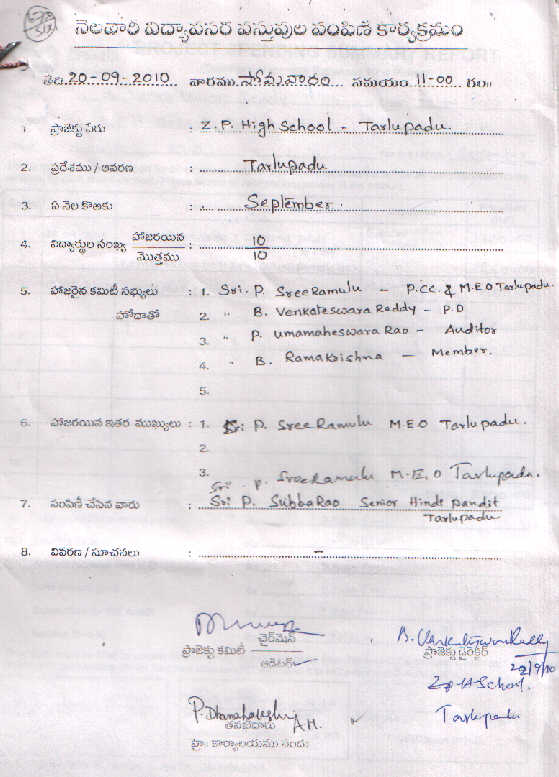 నెలవారి విద్యాపసర వస్తువుల పంపిణీ కార్యక్రమం
తేది 20-09-2010 వారము సోమవారం సమయం 11-00 గం॥
1. ప్రాజెక్టు పేరు : Z.P. High School - Tarlupadu.
2. ప్రదేశము / ఆవరణ : Tarlupadu
3. ఏ నెల కొఱకు : September.
4. విద్యార్థుల సంఖ్య హాజరయిన : 10
మొత్తము 10
5. హాజరైన కమిటీ సభ్యులు : 1. Sri. P. Sree Ramulu - P.CC. & M.E.O Tarlupadu.
హోదాతో 2. " B. Venkateswara Reddy - P.D
3. " P. Umamaheswara Rao - Auditor
4. " B. Ramakrishna - Member.
5.
6. హాజరయిన ఇతర ముఖ్యులు : 1. Sri P. Sree Ramulu M.E.O Tarlupadu.
2.
3. Sri. P. Sree Ramulu M.E.O Tarlupadu.
7. పంపిణీ చేసిన వారు : Sri P. SubbaRao Senior Hindi Pandit
Tarlupadu
8. వివరణ / సూచనలు : -
చైర్‌మెన్ B. Venkateswara Reddy
ప్రాజెక్టు కమిటీ ప్రాజెక్టు డైరెక్టర్
ఆడిటర్ 22/9/10
Z.P.H School.
Tarlupadu
A.M.
కార్యాలయము నందు